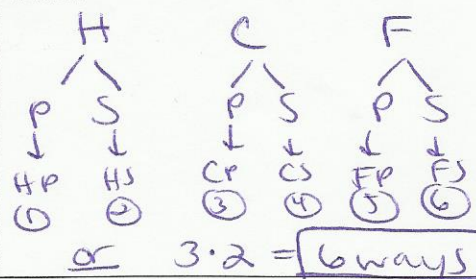 H C F
P S P S P S
HP HS CP CS FP FS
1 2 3 4 5 6
or 3·2 = 6 ways